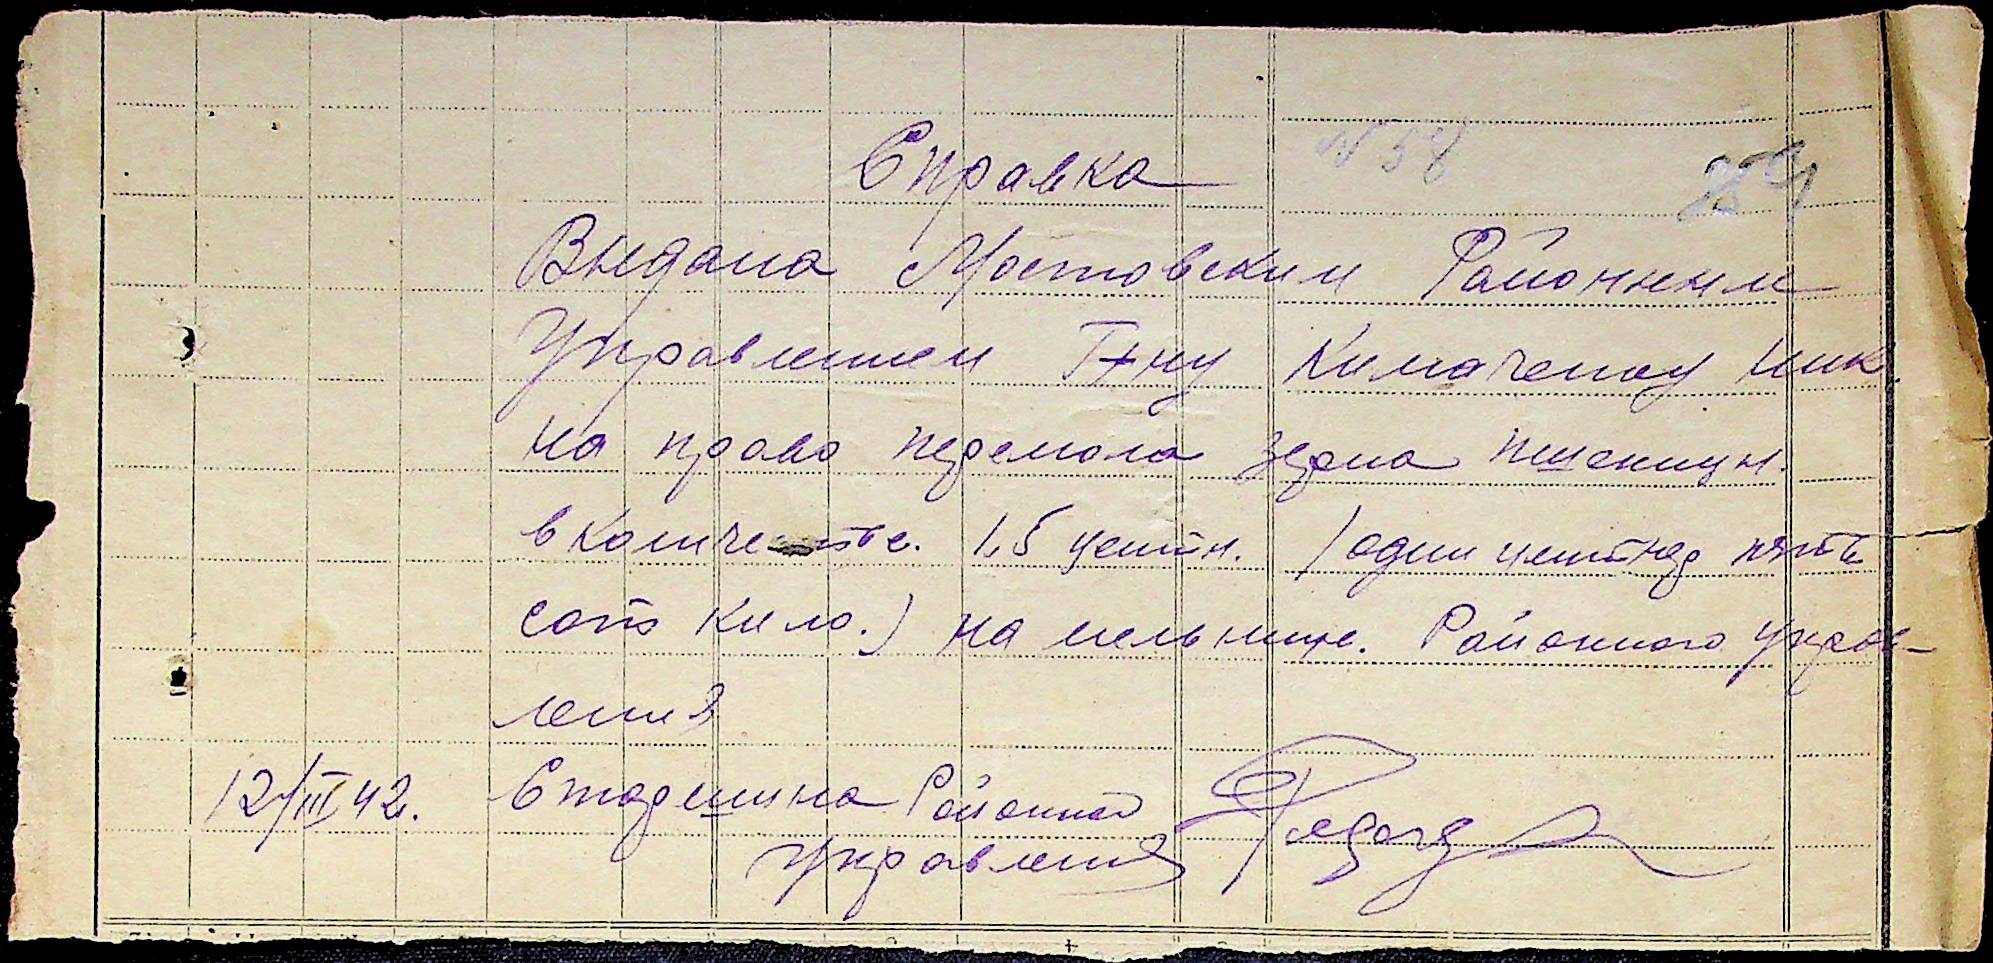 Справка N 58
Выдана Мостовским Районным
Управлением Г-ну Кимаченку Ник.
на право перемола зерна пшеницы.
в количестве. 1,5 центн. /один центнер пять
сот кило.) на мельнице. Районного Управ-
ления
12/III 42. Старшина Районной
Управления